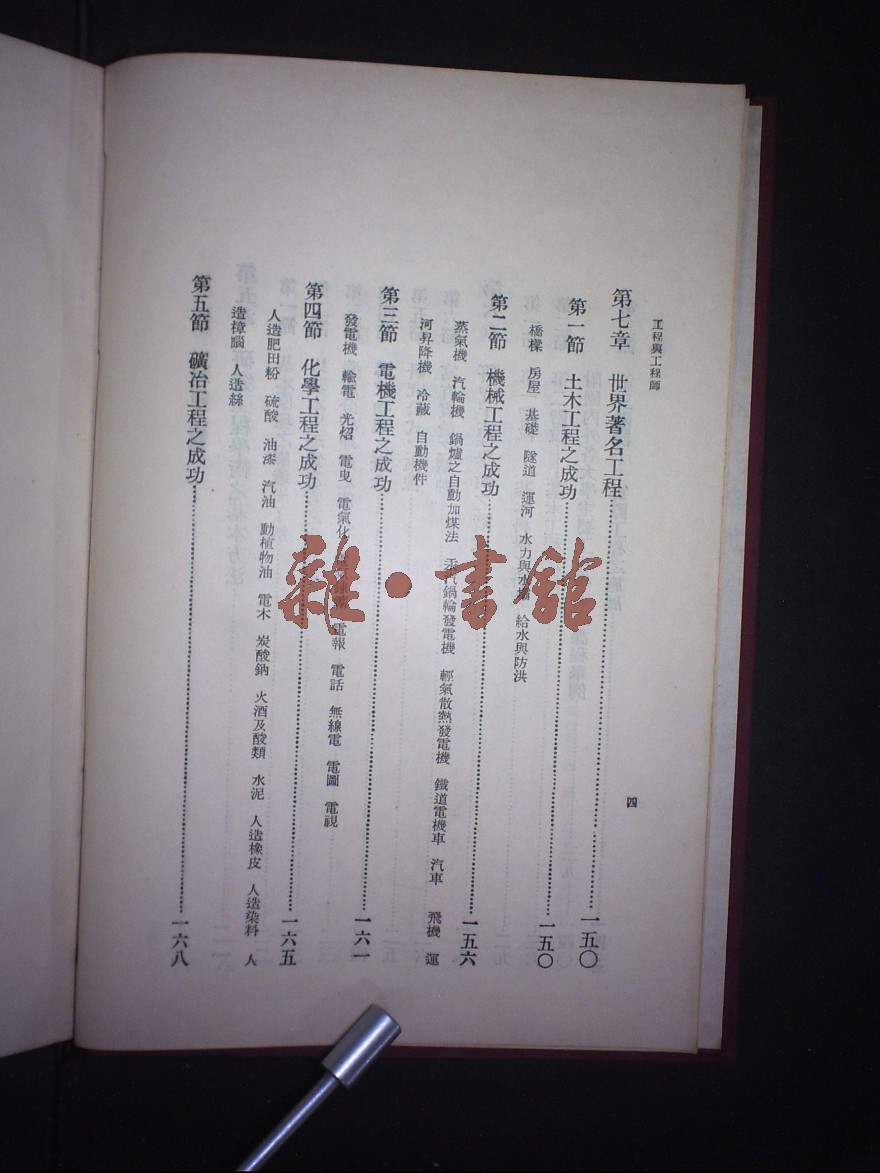 工程與工程師
四
第七章 世界著名工程 一五〇
第一節 土木工程之成功 一五〇
橋樑 房屋 基礎 隧道 運河 水力與水 給水與防洪
第二節 機械工程之成功 一五六
蒸氣機 汽輪機 鍋爐之自動加煤法 汞汽鍋輪發電機 輕氣散熱發電機 鐵道電機車 汽車 飛機 運
河昇降機 冷藏 自動機件
第三節 電機工程之成功 一六一
發電機 輸電 光炤 電曳 電氣化 電報 電話 無線電 電圖 電視
第四節 化學工程之成功 一六五
人造肥田粉 硫酸 油漆 汽油 動植物油 電木 炭酸鈉 火酒及酸類 水泥 人造橡皮 人造染料 人
造樟腦 人造絲
第五節 礦冶工程之成功 一六八
雜·書館